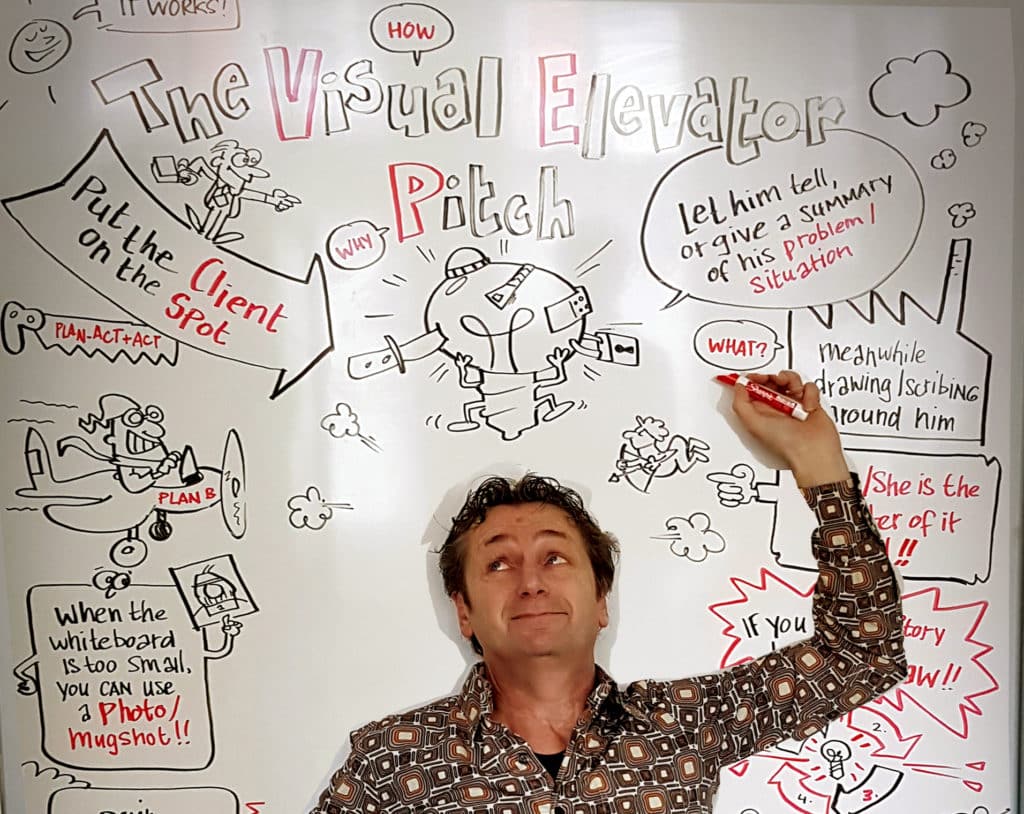 IT WORKS!
HOW
The Visual Elevator
Pitch
Put the Client
on the Spot
WHY
Let him tell,
or give a SUMMARY
of his problem/
situation
PLAN-ACT+ACT
WHAT?
meanwhile
drawing/scribing
around him
PLAN B
/She is the
of it
!!
When the
whiteboard
is too small,
you CAN use
a Photo/
Mugshot!!
IF you
!!
2.
3.
4.